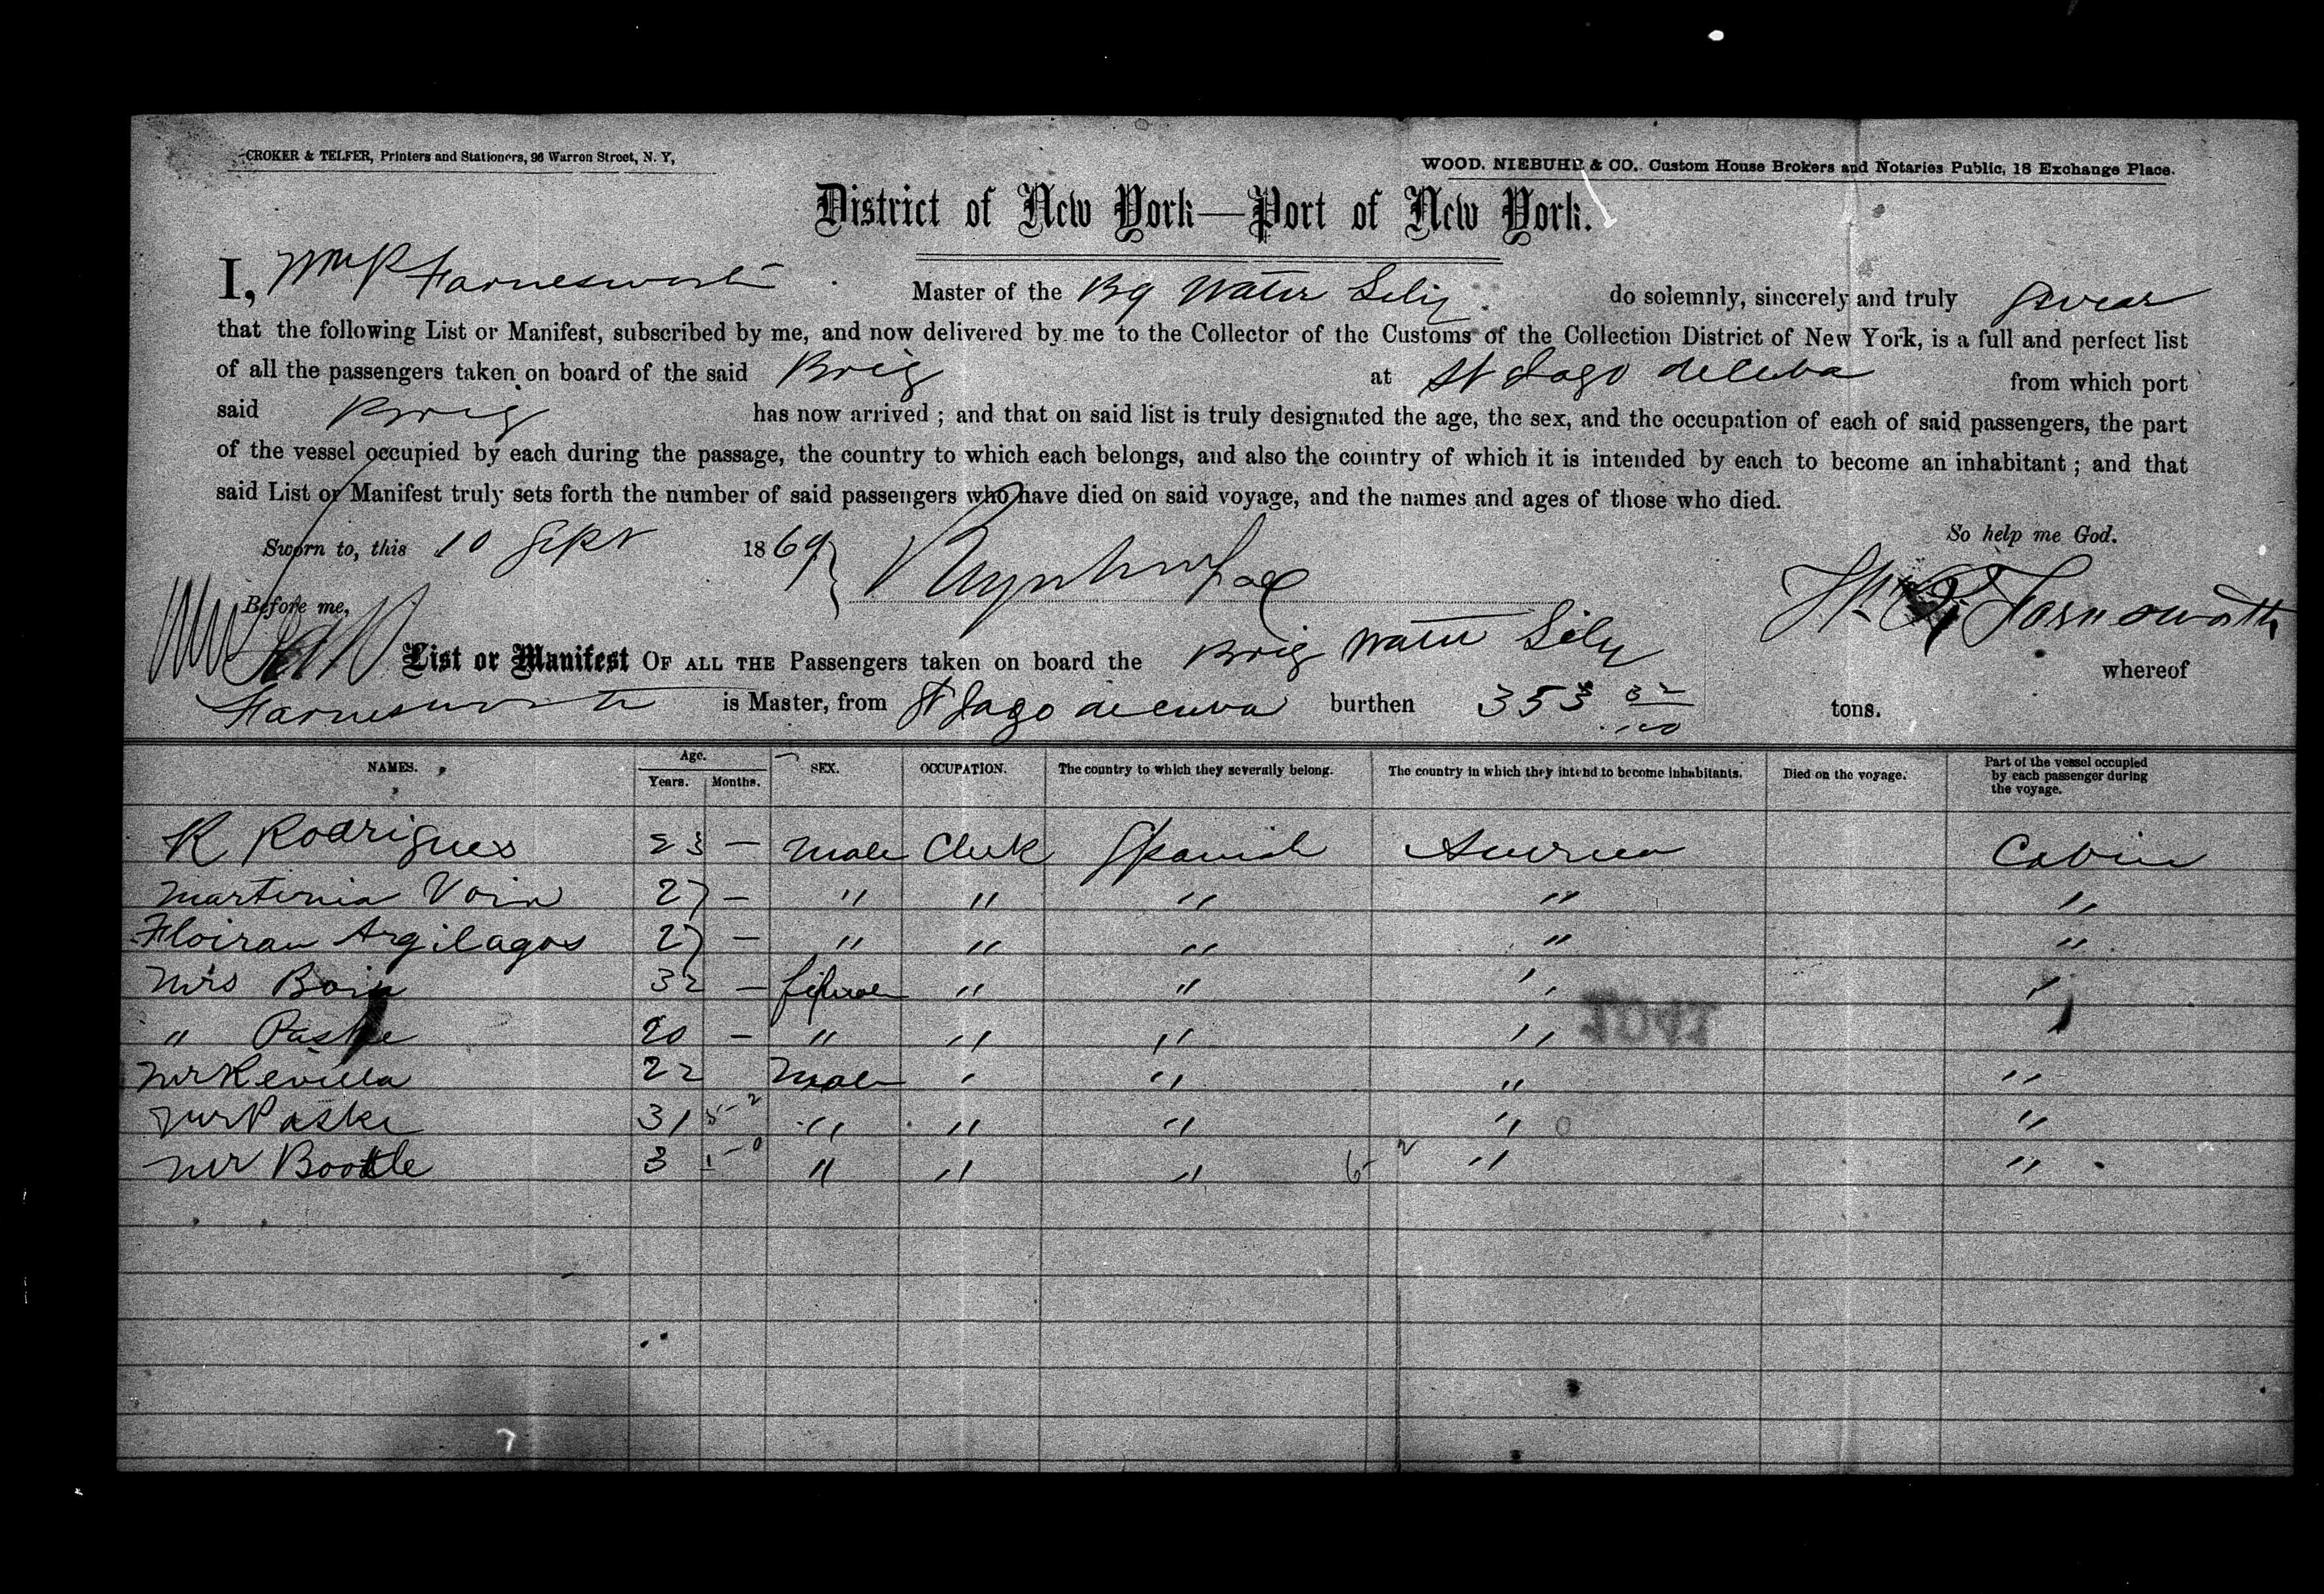 CROKER & TELFER, Printers and Stationers, 96 Warren Street, N. Y,
WOOD. NIEBUHR & CO. Custom House Brokers and Notaries Public, 18 Exchange Place.
District of New York—Port of New York.
I, Wm R Farnesworth Master of the Bg Water Lily do solemnly, sincerely and truly swear
that the following List or Manifest, subscribed by me, and now delivered by me to the Collector of the Customs of the Collection District of New York, is a full and perfect list
of all the passengers taken on board of the said Brig at St Jago de Cuba from which port
said Brig has now arrived ; and that on said list is truly designated the age, the sex, and the occupation of each of said passengers, the part
of the vessel occupied by each during the passage, the country to which each belongs, and also the country of which it is intended by each to become an inhabitant ; and that
said List or Manifest truly sets forth the number of said passengers who have died on said voyage, and the names and ages of those who died.
So help me God.
Sworn to, this 10 Sept 1869
Before me,
Wm R Farnsworth
List or Manifest OF ALL THE Passengers taken on board the Brig Water Lily whereof
Farnesworth is Master, from St Jago de cuba burthen 353 32/100 tons.
NAMES. Age. Years. Months. SEX. OCCUPATION. The country to which they severally belong. The country in which they intend to become inhabitants. Died on the voyage. Part of the vessel occupied by each passenger during the voyage.
R Rodrigues 23 — Male Clerk Spanish America Cabin
Martinia Voin 27 — " " " " "
Floiran Argilagos 27 — " " " " "
Mrs Boin 32 — female " " " "
" Paske 20 — " " " " "
Mr Revilla 22 Male " " " "
Mr Paske 31 " " " " "
Mr Bootle 3 " " " " "